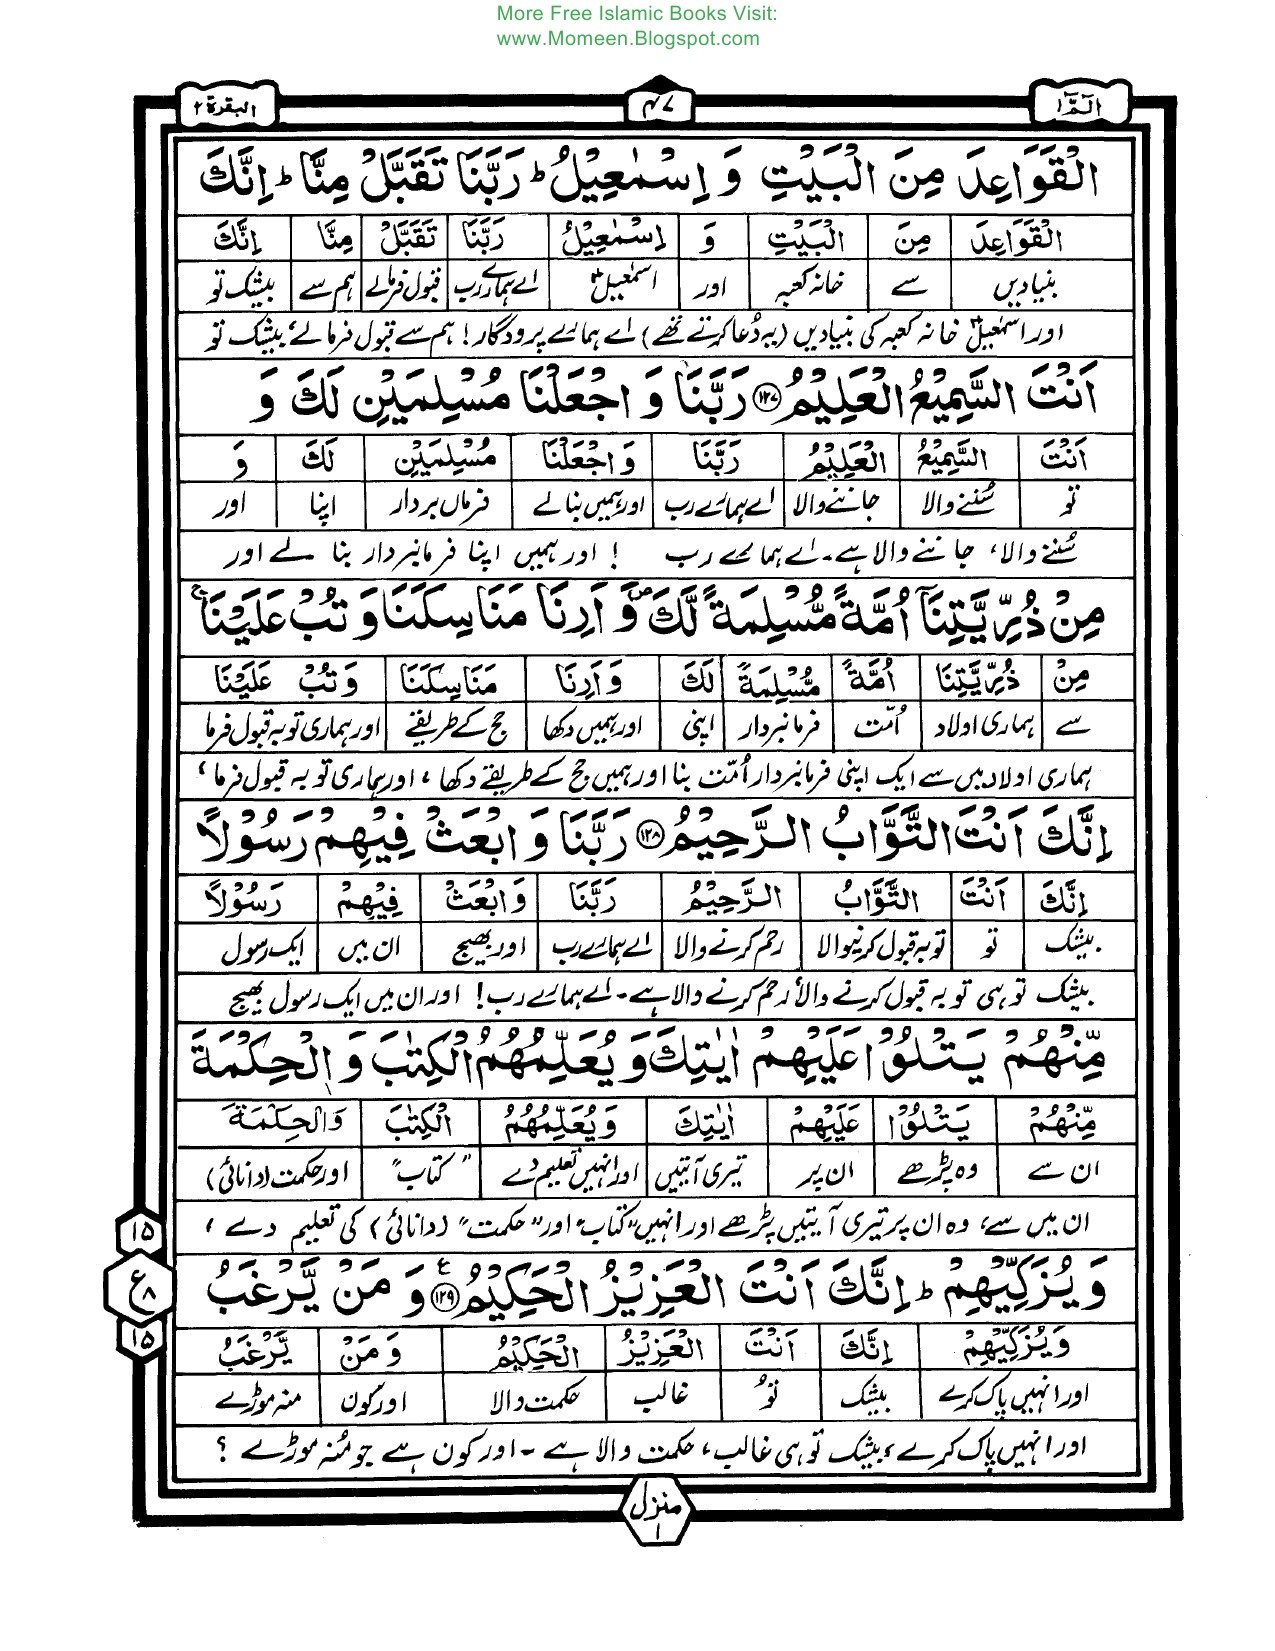 More Free Islamic Books Visit:
www.Momeen.Blogspot.com
الٓمّٓ ۱ ۴۷ البقرۃ ۲
الْقَوَاعِدَ مِنَ الْبَیْتِ وَ اِسْمٰعِیْلُ ؕ رَبَّنَا تَقَبَّلْ مِنَّا ؕ اِنَّكَ
الْقَوَاعِدَ مِنَ الْبَیْتِ وَ اِسْمٰعِیْلُ رَبَّنَا تَقَبَّلْ مِنَّا اِنَّكَ
بنیادیں سے خانہ کعبہ اور اسمٰعیلؑ اے ہمارے رب قبول فرمالے ہم سے بیشک تو
اور اسمٰعیلؑ خانہ کعبہ کی بنیادیں (یہ دُعا کرتے تھے) اے ہمارے پرودگار! ہم سے قبول فرمالے، بیشک تو
اَنْتَ السَّمِیْعُ الْعَلِیْمُ ۱۲۷ رَبَّنَا وَ اجْعَلْنَا مُسْلِمَیْنِ لَكَ وَ
اَنْتَ السَّمِیْعُ الْعَلِیْمُ رَبَّنَا وَ اجْعَلْنَا مُسْلِمَیْنِ لَكَ وَ
تو سُننے والا جاننے والا اے ہمارے رب اور ہمیں بنالے فرماں بردار اپنا اور
سُننے والا، جاننے والا ہے۔ اے ہمارے رب ! اور ہمیں اپنا فرمانبردار بنا لے اور
مِنْ ذُرِّیَّتِنَاۤ اُمَّةً مُّسْلِمَةً لَّكَ ۪ وَ اَرِنَا مَنَاسِكَنَا وَ تُبْ عَلَیْنَا ۚ
مِنْ ذُرِّیَّتِنَا اُمَّةً مُّسْلِمَةً لَكَ وَ اَرِنَا مَنَاسِكَنَا وَ تُبْ عَلَیْنَا
سے ہماری اولاد اُمّت فرمانبردار اپنی اور ہمیں دکھا حج کے طریقے اور ہماری توبہ قبول فرما
ہماری اولاد میں سے ایک اپنی فرمانبردار اُمّت بنا اور ہمیں حج کے طریقے دکھا، اور ہماری توبہ قبول فرما،
اِنَّكَ اَنْتَ التَّوَّابُ الرَّحِیْمُ ۱۲۸ رَبَّنَا وَ ابْعَثْ فِیْهِمْ رَسُوْلًا
اِنَّكَ اَنْتَ التَّوَّابُ الرَّحِیْمُ رَبَّنَا وَ ابْعَثْ فِیْهِمْ رَسُوْلًا
بیشک تو توبہ قبول کرنیوالا رحم کرنے والا اے ہمارے رب اور بھیج ان میں ایک رسول
بیشک تو ہی توبہ قبول کرنے والا، رحم کرنے والا ہے۔ اے ہمارے رب! اور ان میں ایک رسول بھیج
مِّنْهُمْ یَتْلُوْا عَلَیْهِمْ اٰیٰتِكَ وَ یُعَلِّمُهُمُ الْكِتٰبَ وَ الْحِكْمَةَ
مِّنْهُمْ یَتْلُوْا عَلَیْهِمْ اٰیٰتِكَ وَ یُعَلِّمُهُمُ الْكِتٰبَ وَ الْحِكْمَةَ
ان سے وہ پڑھے ان پر تیری آیتیں اور انہیں تعلیم دے ”کتاب“ اور حکمت (دانائی)
ان میں سے، وہ ان پر تیری آیتیں پڑھے اور انہیں ”کتاب“ اور ”حکمت“ (دانائی) کی تعلیم دے،
وَ یُزَكِّیْهِمْ ؕ اِنَّكَ اَنْتَ الْعَزِیْزُ الْحَكِیْمُ ۱۲۹ ع وَ مَنْ یَّرْغَبُ
وَ یُزَكِّیْهِمْ اِنَّكَ اَنْتَ الْعَزِیْزُ الْحَكِیْمُ وَ مَنْ یَّرْغَبُ
اور انہیں پاک کرے بیشک تو غالب حکمت والا اور کون منہ موڑے
اور انہیں پاک کرے، بیشک تو ہی غالب، حکمت والا ہے - اور کون ہے جو مُنہ موڑے ؟
۱۵
ع ۸
۱۵
منزل ۱